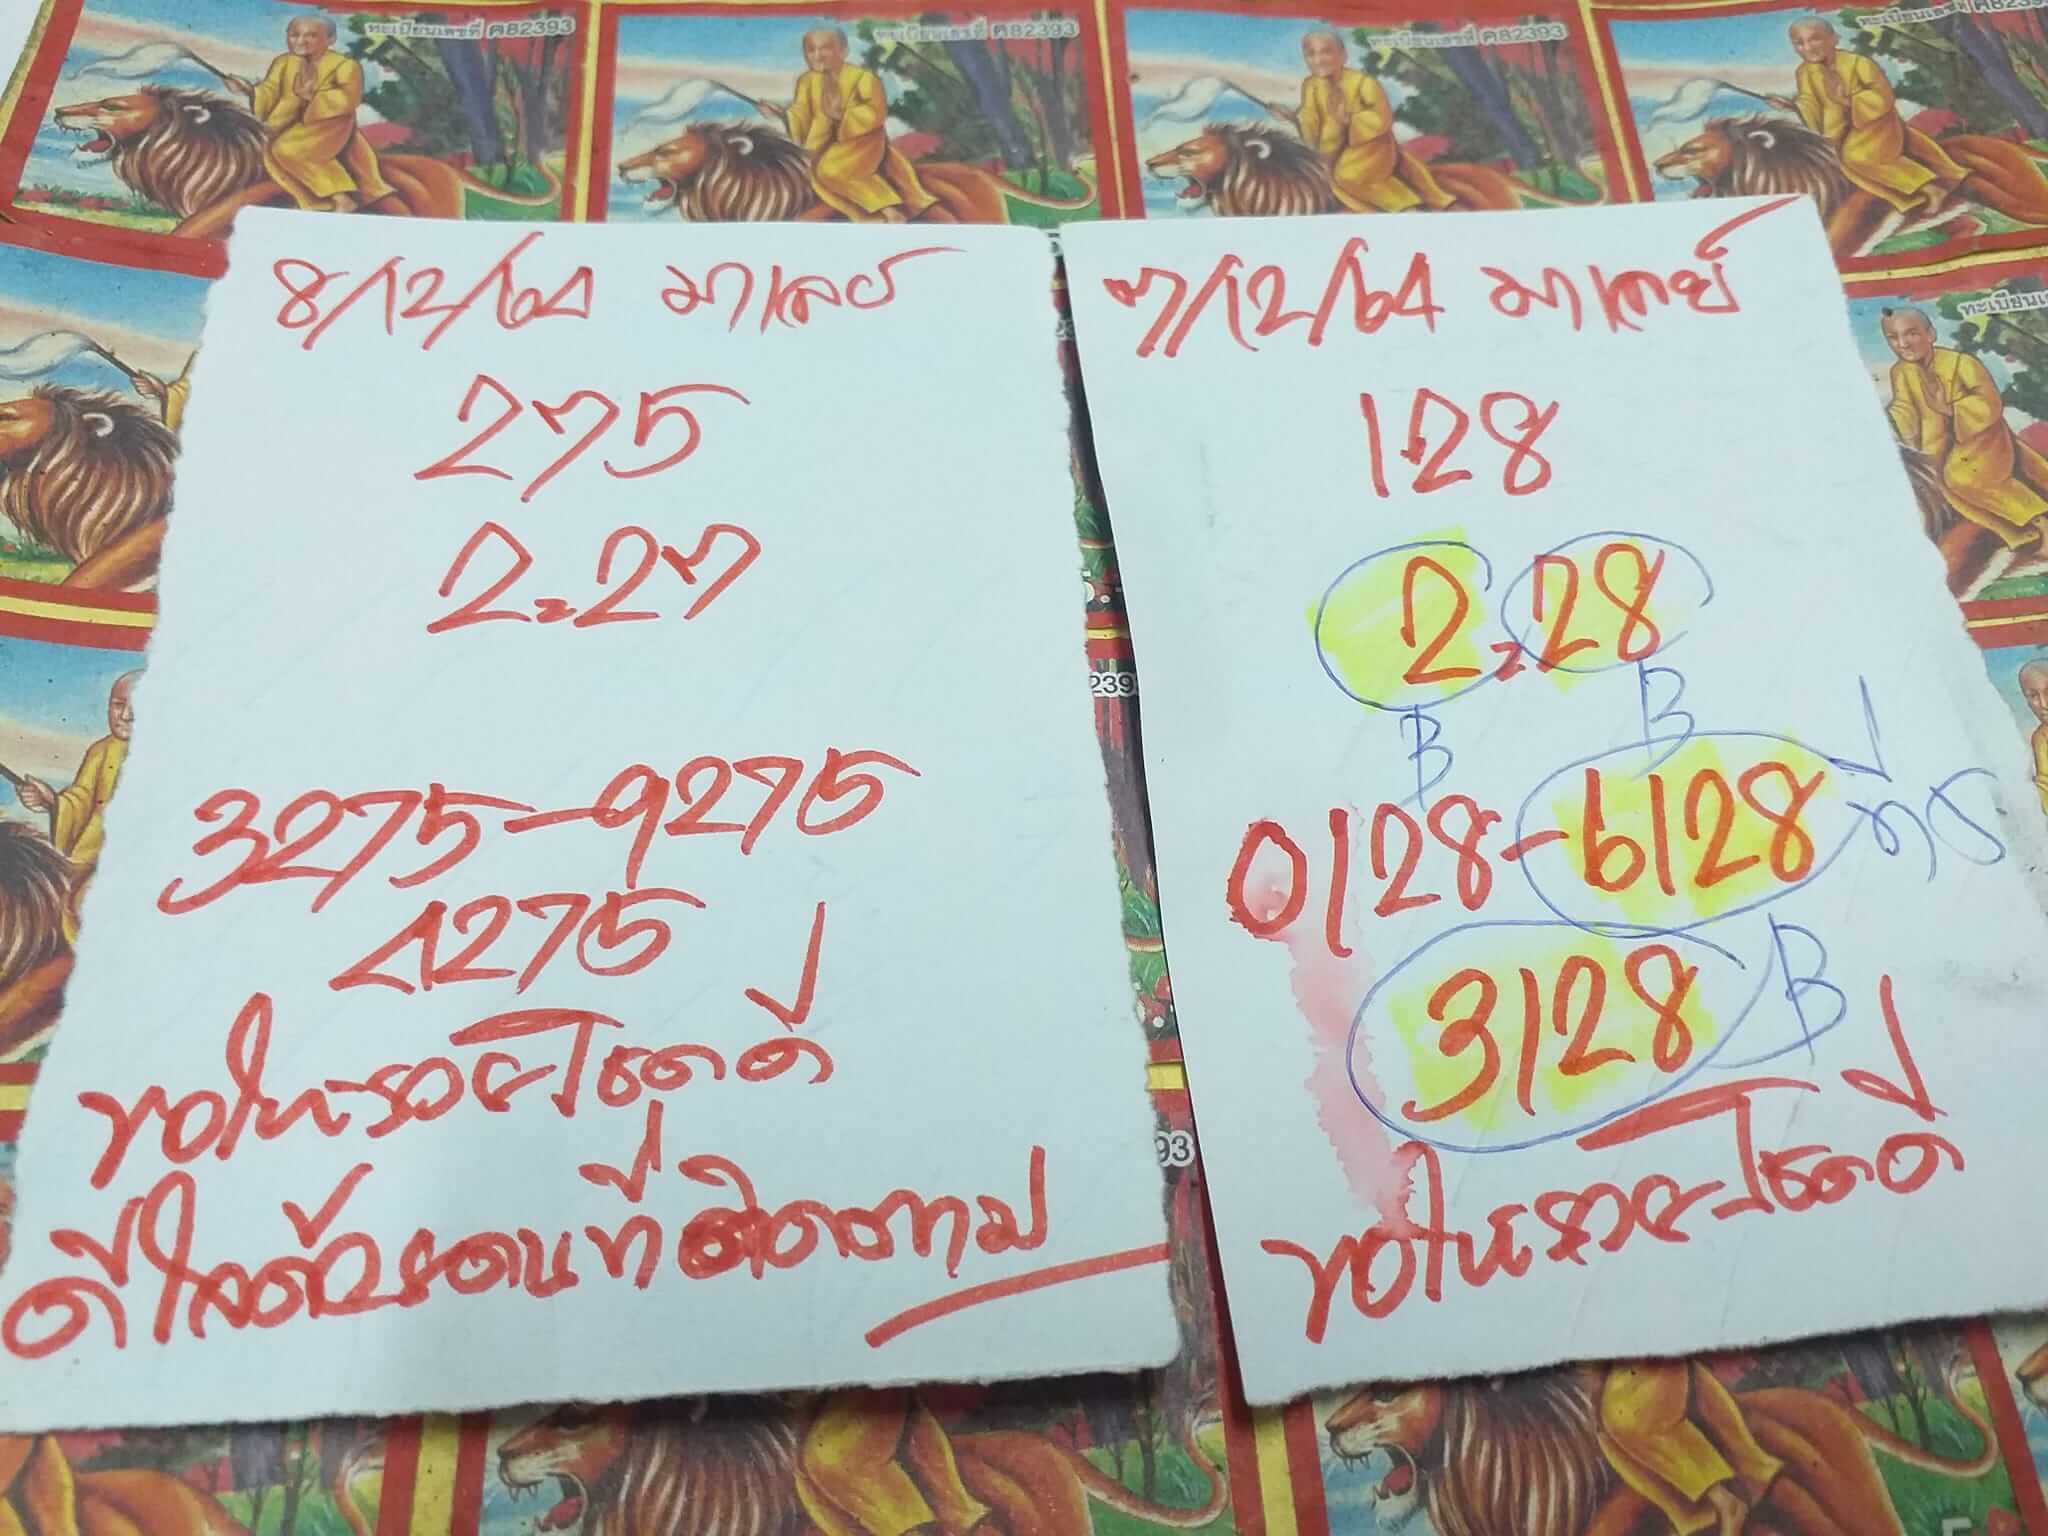 ทะเบียนเลขที่ ฅ82393
ทะเบียนเลขที่ ฅ82393
ทะเบียนเลขที่ ฅ82393
8/12/64 มาเลย์
275
2=27
3275-9275
4275
ขอให้รวยโชคดี
ดีใจด้วยคนที่ติดตาม
7/12/64 มาเลย์
128
2=28
B
B
0128-6128
3128
B
ขอให้รวยโชคดี